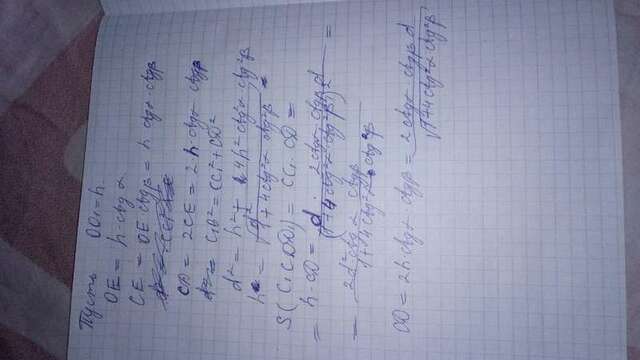 Пусть OO₁=h.
OE = h·ctg α
CE = OE ctgβ = h ctgα·ctgβ
CD = 2CE = 2h ctgα·ctgβ
d² = C₁D² = CC₁²+CD²
d² = h² + 4h² ctg²α·ctg²β
h = √(d² / (1+4ctg²α·ctg²β))
S(C₁CDD₁) = CC₁·CD =
= h·CD = d · 2ctgα·ctgβ d / (√(1+4ctg²α·ctg²β))² =
= 2d² ctgα·ctgβ / (1+4ctg²α·ctg²β)
CD = 2h ctgα·ctgβ = 2ctgα·ctgβ d / √(1+4ctg²α·ctg²β)